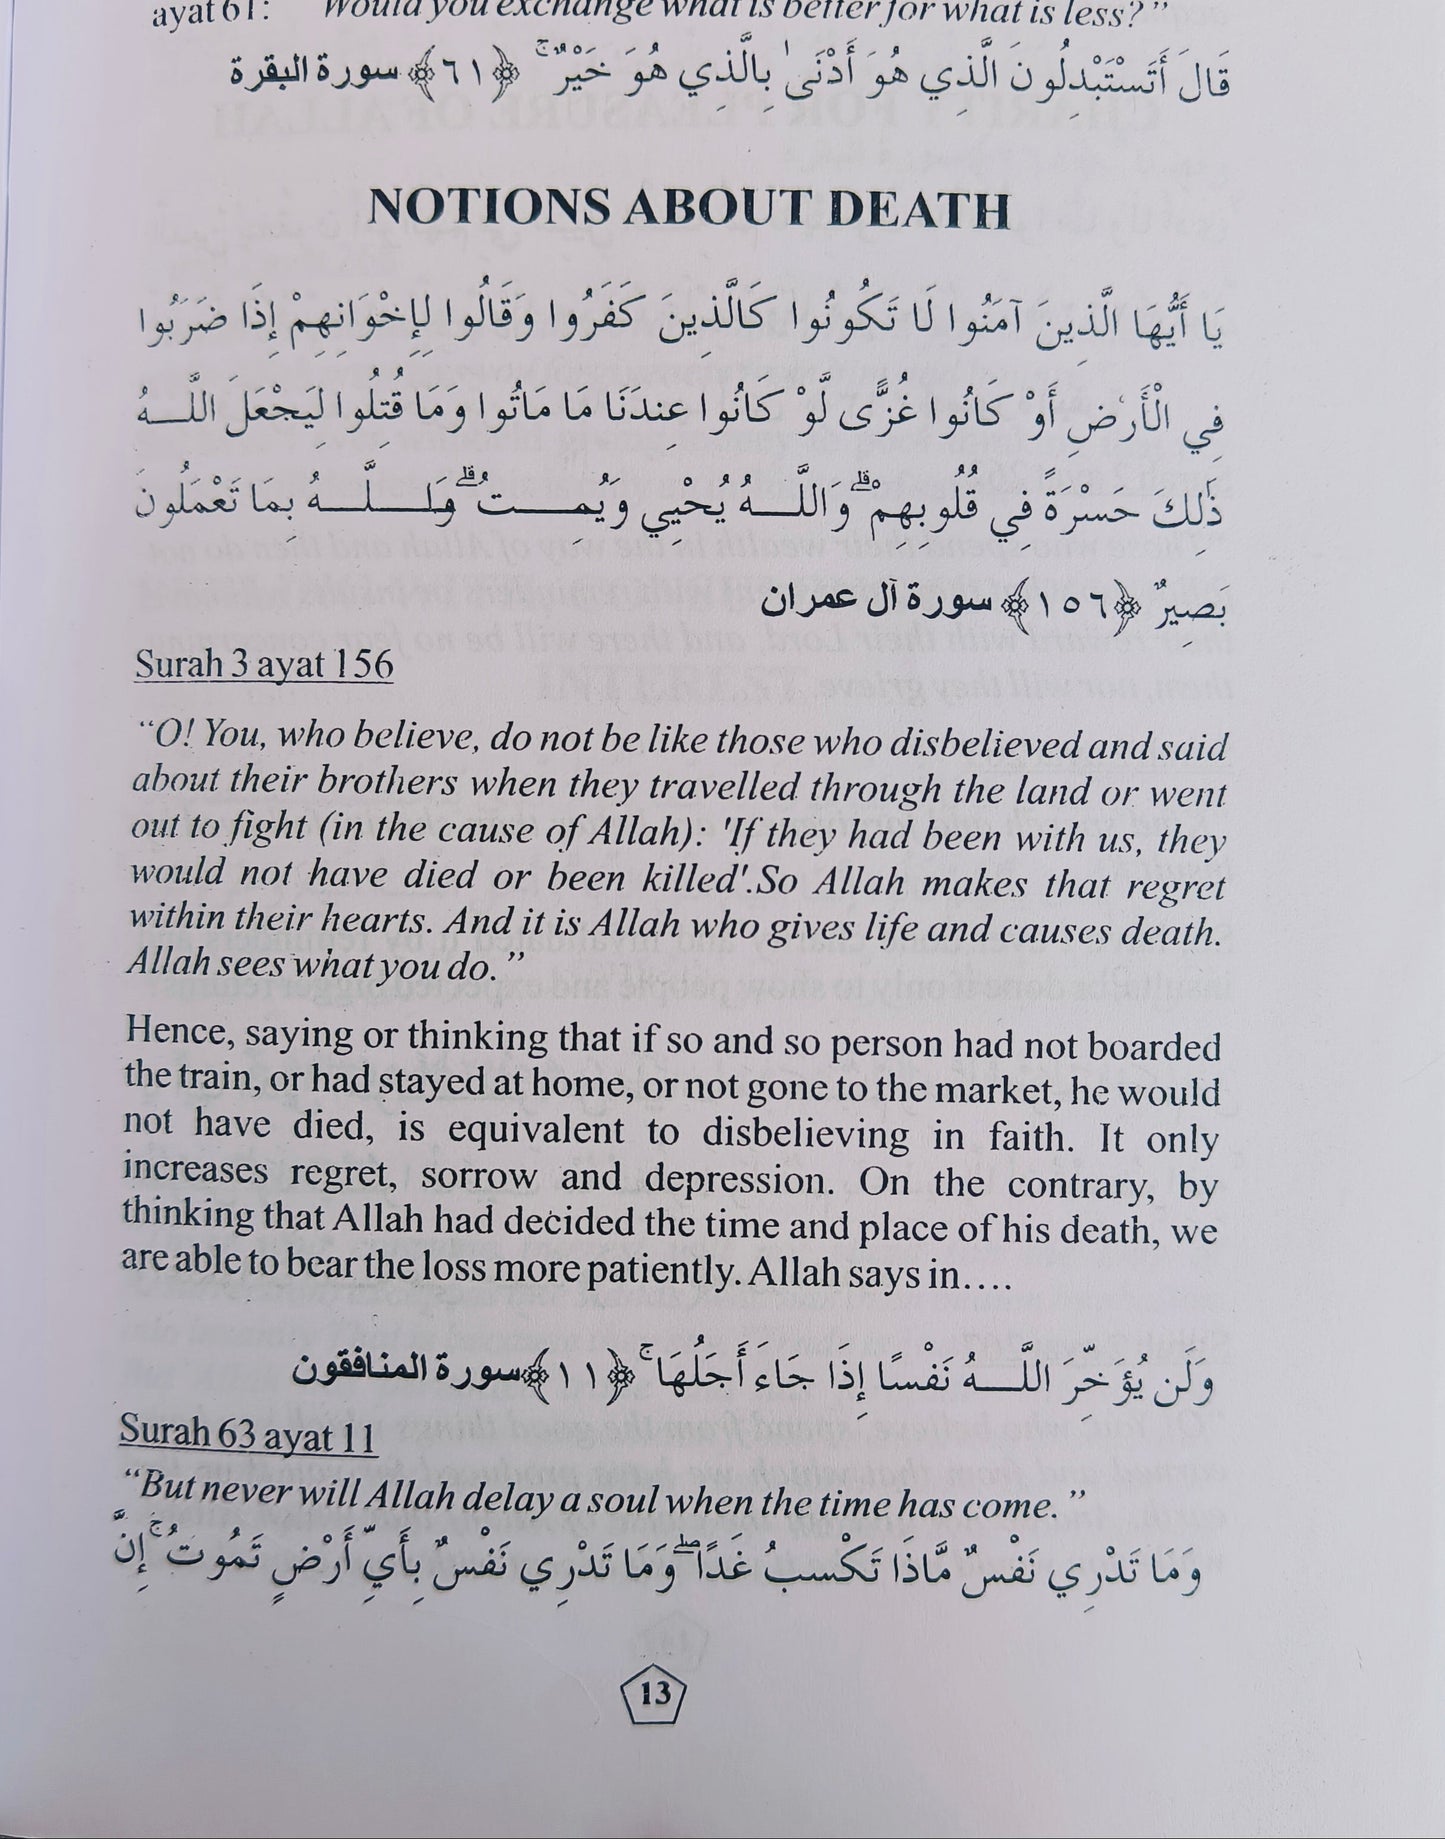 ayat 61: Would you exchange what is better for what is less?”
قَالَ أَتَسْتَبْدِلُونَ الَّذِي هُوَ أَدْنَىٰ بِالَّذِي هُوَ خَيْرٌ ۚ ﴿٦١﴾ سورة البقرة
NOTIONS ABOUT DEATH
يَا أَيُّهَا الَّذِينَ آمَنُوا لَا تَكُونُوا كَالَّذِينَ كَفَرُوا وَقَالُوا لِإِخْوَانِهِمْ إِذَا ضَرَبُوا
فِي الْأَرْضِ أَوْ كَانُوا غُزًّى لَّوْ كَانُوا عِندَنَا مَا مَاتُوا وَمَا قُتِلُوا لِيَجْعَلَ اللَّـهُ
ذَٰلِكَ حَسْرَةً فِي قُلُوبِهِمْ ۗ وَاللَّـهُ يُحْيِي وَيُمِيتُ ۗ وَاللَّـهُ بِمَا تَعْمَلُونَ
بَصِيرٌ ﴿١٥٦﴾ سورة آل عمران
Surah 3 ayat 156
“O! You, who believe, do not be like those who disbelieved and said
about their brothers when they travelled through the land or went
out to fight (in the cause of Allah): 'If they had been with us, they
would not have died or been killed'.So Allah makes that regret
within their hearts. And it is Allah who gives life and causes death.
Allah sees what you do.”
Hence, saying or thinking that if so and so person had not boarded
the train, or had stayed at home, or not gone to the market, he would
not have died, is equivalent to disbelieving in faith. It only
increases regret, sorrow and depression. On the contrary, by
thinking that Allah had decided the time and place of his death, we
are able to bear the loss more patiently. Allah says in....
وَلَن يُؤَخِّرَ اللَّـهُ نَفْسًا إِذَا جَاءَ أَجَلُهَا ۚ ﴿١١﴾سورة المنافقون
Surah 63 ayat 11
“But never will Allah delay a soul when the time has come.”
وَمَا تَدْرِي نَفْسٌ مَّاذَا تَكْسِبُ غَدًا ۖ وَمَا تَدْرِي نَفْسٌ بِأَيِّ أَرْضٍ تَمُوتُ ۚ إِنَّ
13